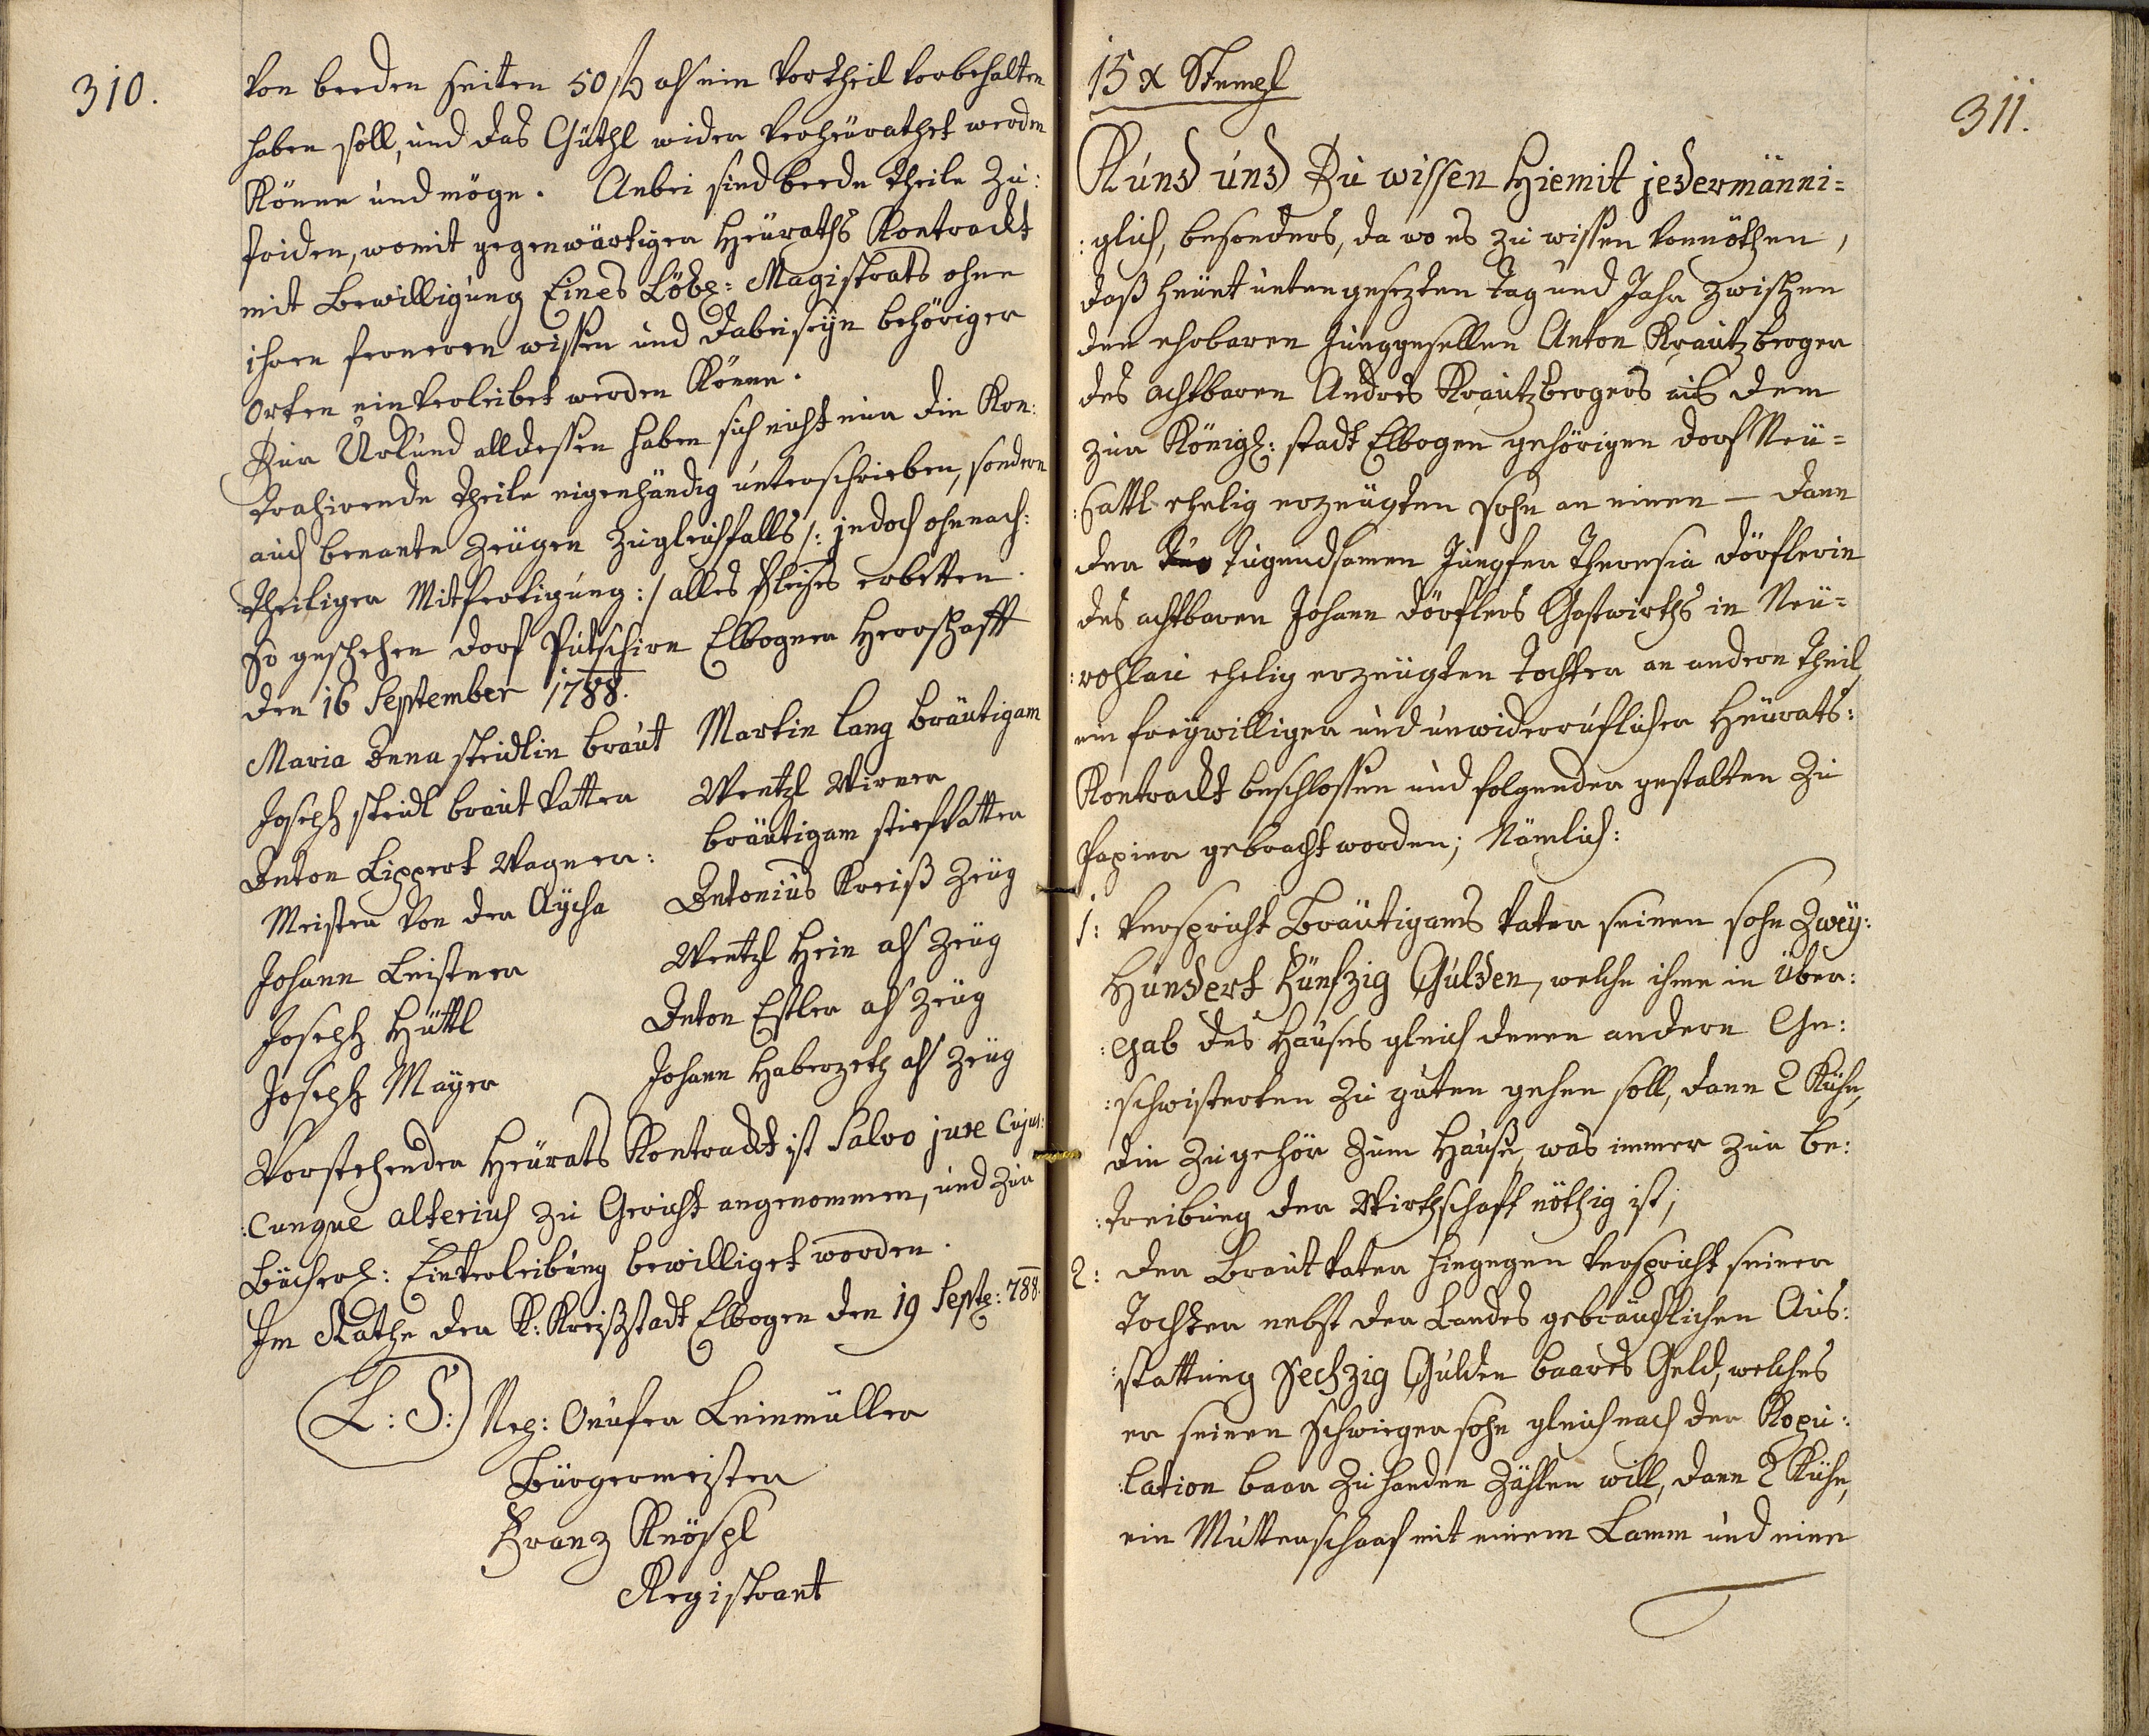 310.
von beeden seiten 50 ß als ein Vortheil vorbehalten
haben soll, und das Güthl wider verheürathet werden
Könne und möge. Anbei sind beede theile Zu:
friden, womit gegenwärtiger Heüraths Kontrackt
mit Bewilligung Eines Löbl: Magistrats ohne
ihren ferneren wissen und dabeiseÿn behöriger
Orten einverleibet werden Könne.
Zur Urkund alldessen haben sich nicht nur die Kon:
trahirende theile eigenhändig unterschrieben, sondern
auch benante Zeügen Zugleichfalls /: jedoch ohnnach:
:theiliger Mitfertigung :/ alles fleises erbetten.
So geschehen dorf Putschirn Elbogner Herrschafft
den 16 September 1788.
Maria Anna steidlin braut Martin Lang bräutigam
Joseph steidl braut Vatter Wentzl Wirner
bräutigam stiefvatter
Anton Lippert Wagner:
Meister von der Aÿcha Antonius Kreiß Zeüg
Johann Leistner Wentzl Hein als Zeüg
Joseph Hüttl Anton Estler als Zeüg
Joseph Maÿer Johann Haberzeth als Zeüg
Vorstehender Heürats Kontrackt ist Salvo jure Cujus:
:cunque alterius zu Gericht angenommen, und zur
Bücherl: Einverleibung bewilliget worden.
Im Rathe der K: Kreißstadt Elbogen den 19 Septe: 788.
L: S: Nep: Onufer Leinmüller
Bürgermeister
Franz Knöspl
Registrant
311.
15 x Stempl
Kund und Zu wissen Hiemit jedermänni=
:glich, besonders, da wo es zu wissen vonnöthen,
daß heünt untengesezten Tag und Jahr zwischen
den ehrbaren Junggesellen Anton Krautzberger
des achtbaren Andres Krautzbergers aus dem
zur Königl: stadt Elbogen gehörigen dorf Neü=
:sattl ehelig erzeügten sohn an einen — dann
der tugendsamen Jungfer Theresia Dörflerin
des achtbaren Johann Dörflers Gastwirths in Neü=
:rohlau ehelig erzeügten Tochter an andern theil
ein freÿwilliger und unwiderruflicher Heürats:
Kontrackt beschlossen und folgender gestalten Zu
Papier gebracht worden; Nämlich:
1: verspricht Bräutigams vater seinen sohn Zweÿ:
Hundert Fünfzig Gulden, welche ihme in Über:
:gab des Hauses gleich denen andern Ge:
:schwisterten Zu guten gehen soll, dann 2 Kühe,
die Zugehör Zum Hause, was immer zur Be:
:treibung der Wirthschaft nöthig ist;
2: der Brautvater hingegen verspricht seiner
Tochter nebst der Landes gebräuchlichen Aus:
:stattung Sechzig Gulden baares Geld, welches
er seinen Schwiegersohn gleich nach der Kopu:
:lation baar Zu handen Zählen will, dann 2 Kühe,
ein Mutterschaaf mit einem Lamm und eine